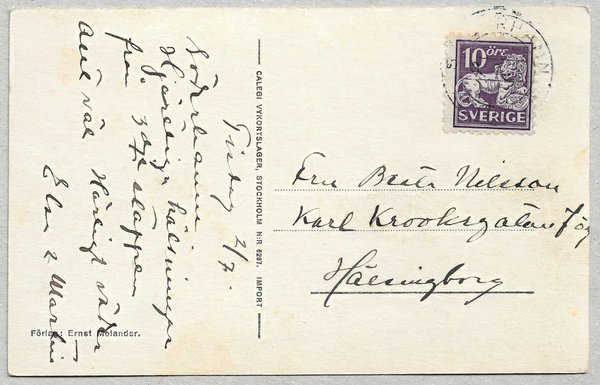 Söderhamn
Tisdag 2/7.
Hjärtliga hälsningar
från 3dje etappen
allt väl Härligt väder
Elsa & Martin
CALEGI VYKORTSLAGER, STOCKHOLM N:R 6287. IMPORT
Förlag: Ernst Molander.
10 öre
SVERIGE
Fru Beata Nilsson
Karl Krooksgatan 7
Hälsingborg